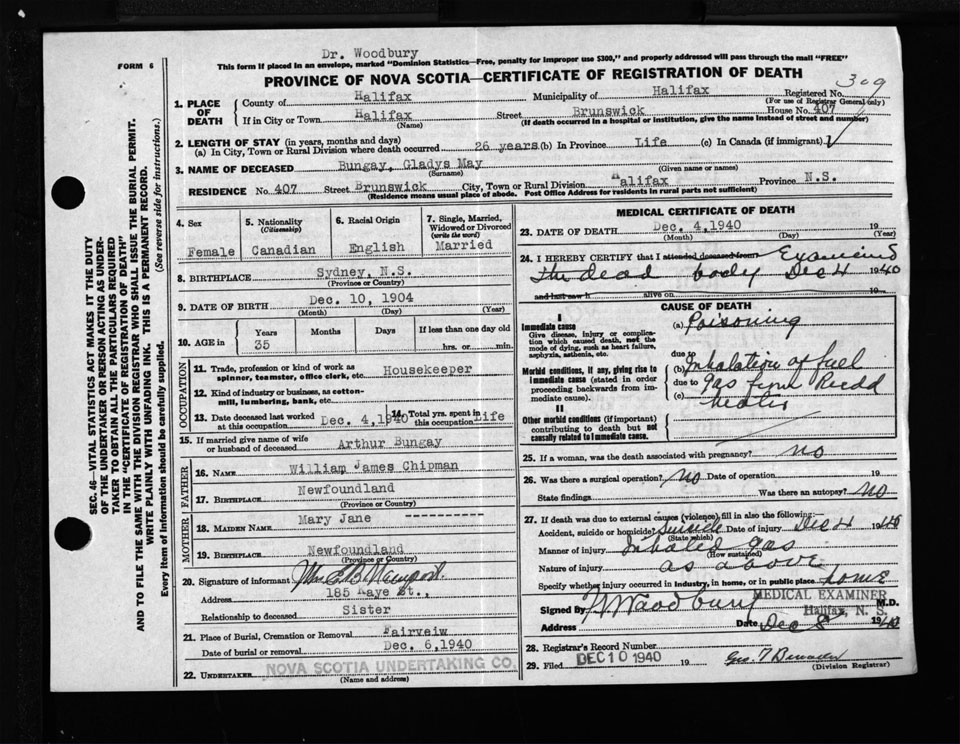 Dr. Woodbury
FORM 6
This form if placed in an envelope, marked "Dominion Statistics—Free, penalty for improper use $300," and properly addressed will pass through the mail "FREE"
PROVINCE OF NOVA SCOTIA—CERTIFICATE OF REGISTRATION OF DEATH
309
1. PLACE OF DEATH
County of Halifax Municipality of Halifax Registered No.
(For use of Registrar General only)
If in City or Town Halifax Street Brunswick House No. 407
(Name) (If death occurred in a hospital or institution, give the name instead of street and number)
2. LENGTH OF STAY (in years, months and days)
(a) In City, Town or Rural Division where death occurred 26 years (b) In Province Life (c) In Canada (if immigrant)
3. NAME OF DECEASED Bungay, Gladys May
(Surname) (Given name or names)
RESIDENCE No. 407 Street Brunswick City, Town or Rural Division Halifax Province N.S.
(Residence means usual place of abode. Post Office Address for residents in rural parts not sufficient)
4. Sex Female
5. Nationality (Citizenship) Canadian
6. Racial Origin English
7. Single, Married, Widowed or Divorced (write the word) Married
8. BIRTHPLACE Sydney, N.S.
(Province or Country)
9. DATE OF BIRTH Dec. 10, 1904
(Month) (Day) (Year)
10. AGE in Years Months Days If less than one day old
35 hrs. or min.
OCCUPATION
11. Trade, profession or kind of work as spinner, teamster, office clerk, etc. Housekeeper
12. Kind of industry or business, as cotton-mill, lumbering, bank, etc.
13. Date deceased last worked at this occupation Dec. 4, 1940 14. Total yrs. spent in this occupation Life
15. If married give name of wife or husband of deceased Arthur Bungay
FATHER
16. NAME William James Chipman
17. BIRTHPLACE Newfoundland
(Province or Country)
MOTHER
18. MAIDEN NAME Mary Jane -----------
19. BIRTHPLACE Newfoundland
(Province or Country)
20. Signature of informant Mrs E B
Address 185 Kaye St.,
Relationship to deceased Sister
21. Place of Burial, Cremation or Removal Fairveiw
Date of burial or removal Dec. 6, 1940
22. UNDERTAKER NOVA SCOTIA UNDERTAKING CO.
(Name and address)
MEDICAL CERTIFICATE OF DEATH
23. DATE OF DEATH Dec. 4, 1940 19
(Month) (Day) (Year)
24. I HEREBY CERTIFY that I attended deceased from Examined
the dead body Dec 4 1940
and last saw h alive on 19
CAUSE OF DEATH
I
Immediate cause
Give disease, injury or complication which caused death, not the mode of dying, such as heart failure, asphyxia, asthenia, etc.
(a) Poisoning
due to
Morbid conditions, if any, giving rise to immediate cause (stated in order proceeding backwards from immediate cause).
(b) Inhalation of fuel
due to gas from
(c) heater
II
Other morbid conditions (if important) contributing to death but not causally related to immediate cause.
25. If a woman, was the death associated with pregnancy? no
26. Was there a surgical operation? no Date of operation 19
State findings Was there an autopsy? no
27. If death was due to external causes (violence) fill in also the following:
Accident, suicide or homicide? Suicide Date of injury Dec 4 1940
(State which)
Manner of injury Inhaled gas
(How sustained)
Nature of injury as above
Specify whether injury occurred in industry, in home, or in public place home
Signed by Woodbury M.D.
MEDICAL EXAMINER
Halifax, N. S.
Address Date Dec 8 1940
28. Registrar's Record Number
29. Filed DEC 10 1940 19 Geo.
(Division Registrar)
SEC. 46—VITAL STATISTICS ACT MAKES IT THE DUTY OF THE UNDERTAKER OR PERSON ACTING AS UNDERTAKER TO OBTAIN ALL THE PARTICULARS REQUIRED IN THE "CERTIFICATE OF REGISTRATION OF DEATH" AND TO FILE THE SAME WITH THE DIVISION REGISTRAR WHO SHALL ISSUE THE BURIAL PERMIT.
WRITE PLAINLY WITH UNFADING INK. THIS IS A PERMANENT RECORD.
Every item of information should be carefully supplied. (See reverse side for instructions.)